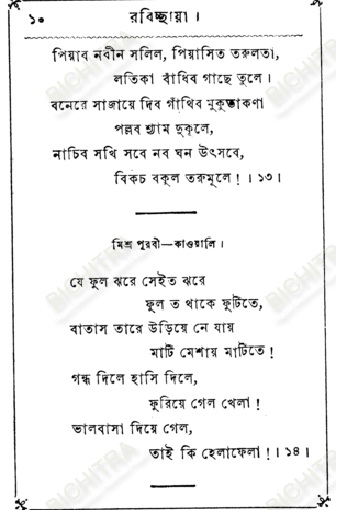 ১০ রবিচ্ছায়া।
পিয়াব নবীন সলিল, পিয়াসিত তরুলতা,
লতিকা বাঁধিব গাছে তুলে।
বনেরে সাজায়ে দিব গাঁথিব মুকুতাকণা
পল্লব শ্যাম দুকূলে,
নাচিব সখি সবে নব ঘন উৎসবে,
বিকচ বকুল তরুমূলে! । ১৩।
মিশ্র পূরবী—কাওয়ালি।
যে ফুল ঝরে সেইত ঝরে
ফুল ত থাকে ফুটিতে,
বাতাস তারে উড়িয়ে নে যায়
মাটি মেশায় মাটিতে!
গন্ধ দিলে হাসি দিলে,
ফুরিয়ে গেল খেলা!
ভালবাসা দিয়ে গেল,
তাই কি হেলাফেলা!। ১৪॥
BICHITRA